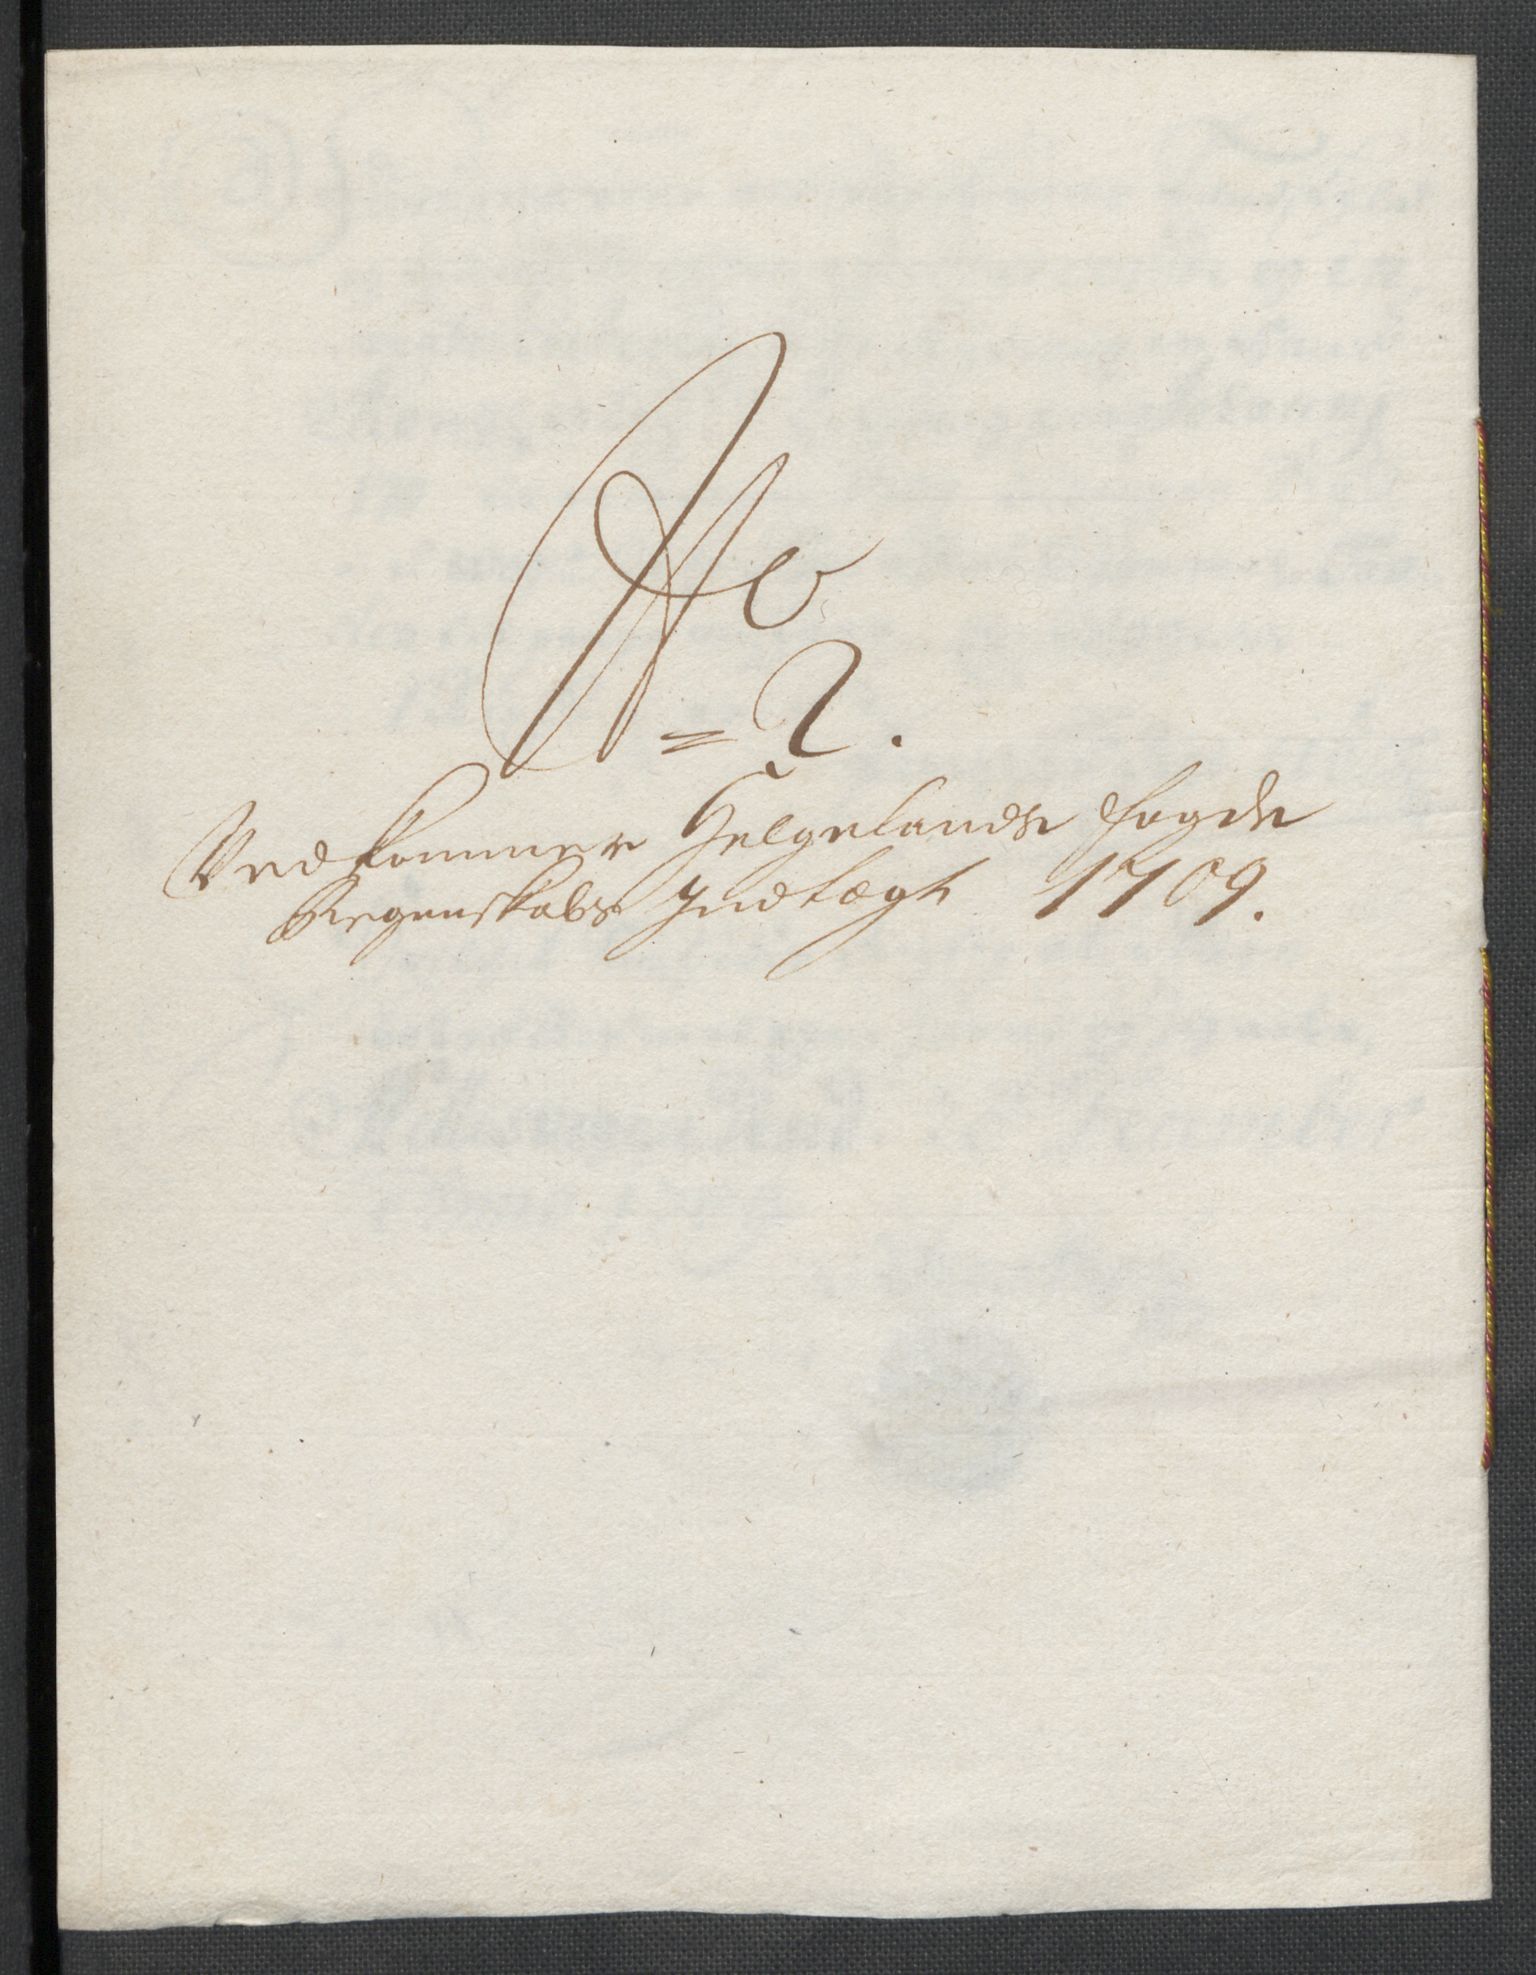 No
= 2.
Vedkommer Helgelands fogde
Regenskabs Indlægh 1709.